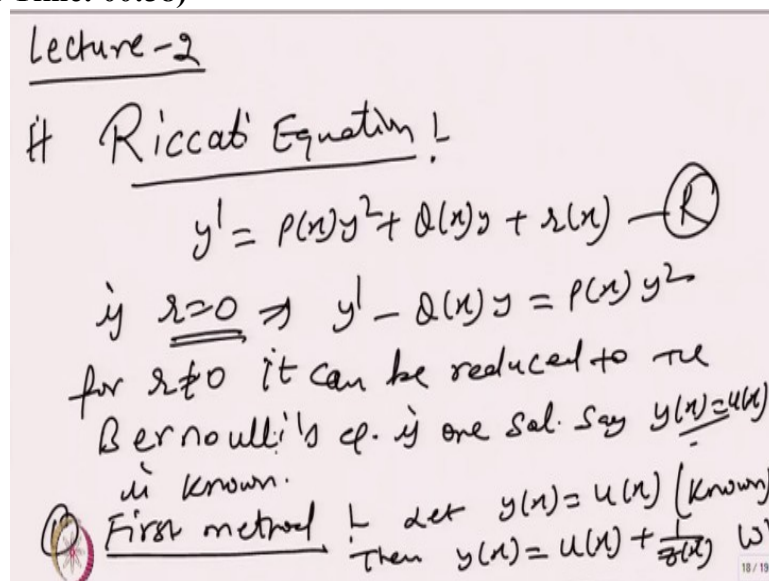 Lecture-2
# Riccati Equation !-
y' = P(x)y² + Q(x)y + r(x) — (R)
if r=0 ⇒ y' - Q(x)y = P(x)y²
for r≠0 it can be reduced to the
Bernoulli's eq. if one sol. say y(x)=u(x)
is known.
① First method !- Let y(x) = u(x) (Known)
Then y(x) = u(x) + 1/z(x)
18 / 19